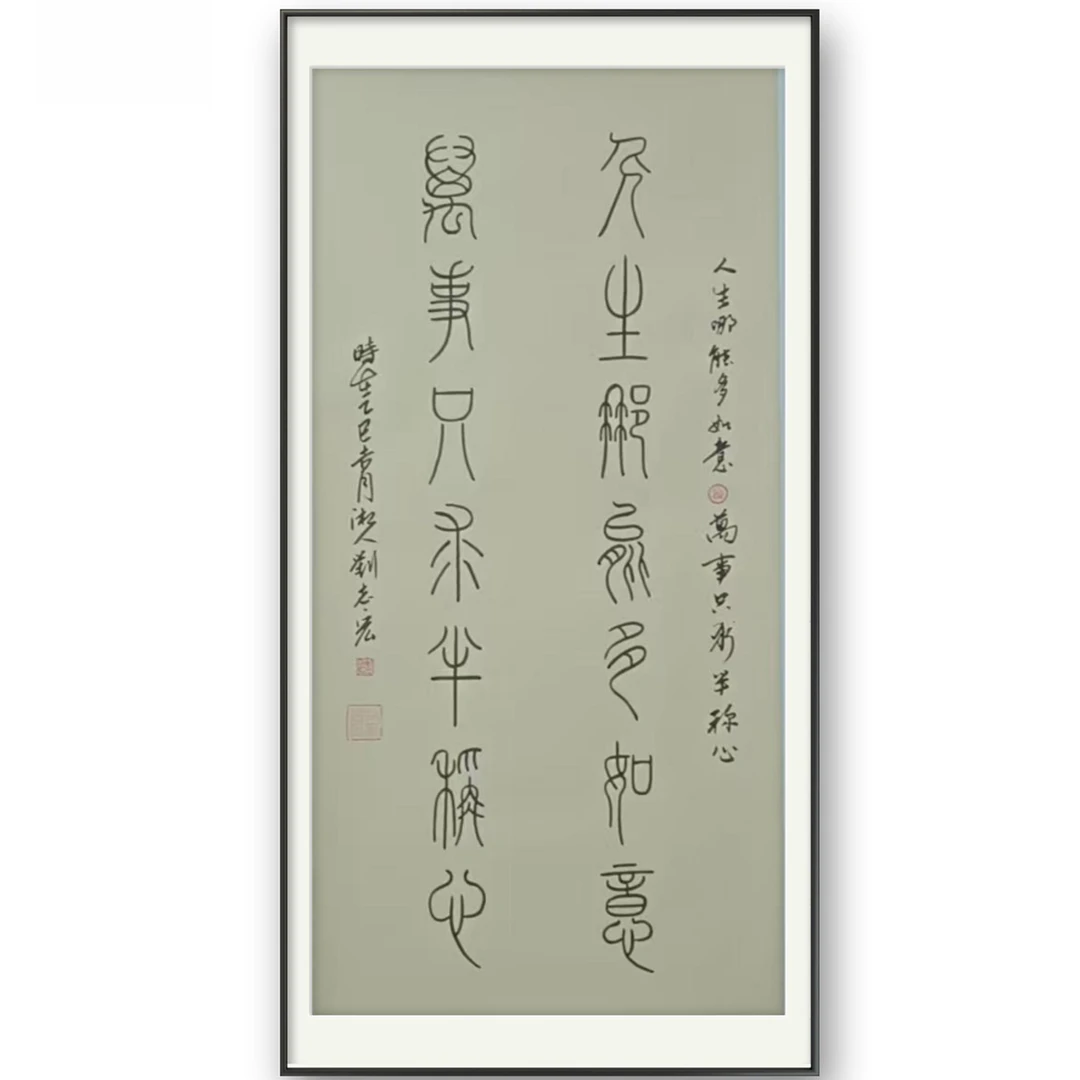 人生哪能多如意 萬事只求半称心
人生哪能多如意
萬事只求半稱心
時在乙巳月人劉志宏